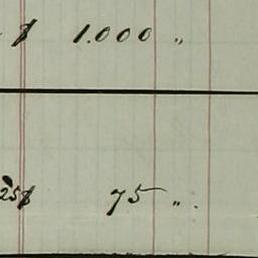 $ 1.000 „
25$ 75 „ .